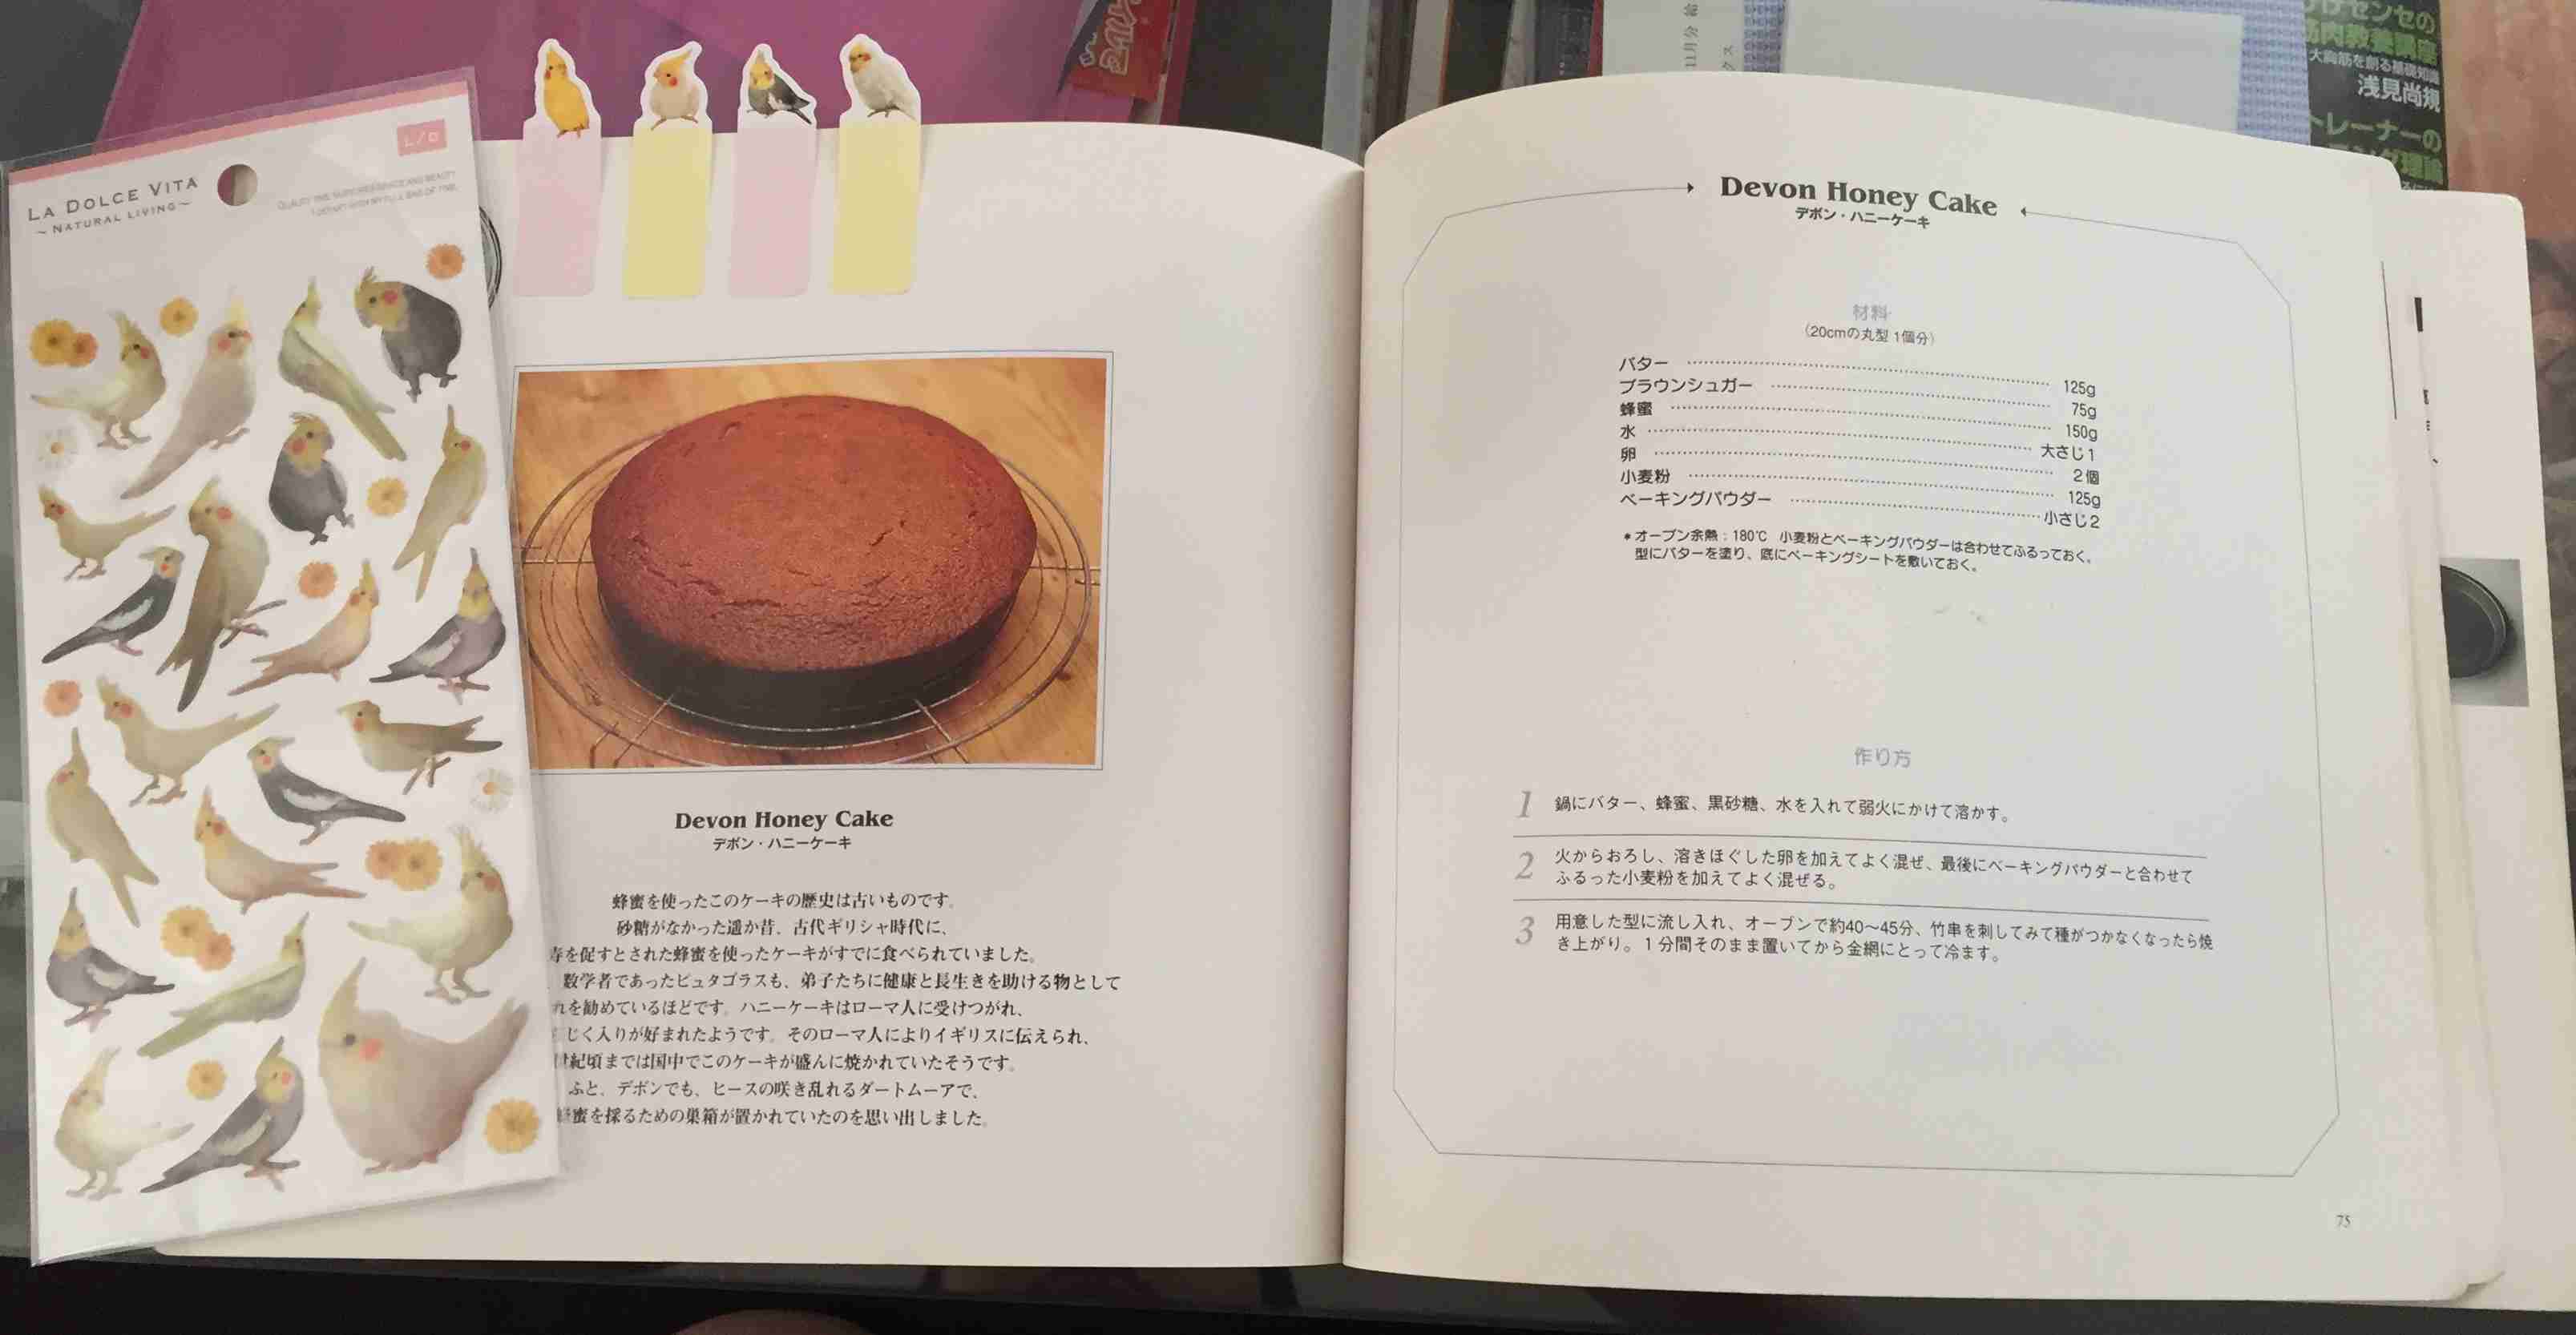 LA DOLCE VITA
～NATURAL LIVING～
L/D
Devon Honey Cake
デボン・ハニーケーキ
蜂蜜を使ったこのケーキの歴史は古いものです。
砂糖がなかった遥か昔、古代ギリシャ時代に、
を促すとされた蜂蜜を使ったケーキがすでに食べられていました。
数学者であったピュタゴラスも、弟子たちに健康と長生きを助ける物として
れを勧めているほどです。ハニーケーキはローマ人に受けつがれ、
じく入りが好まれたようです。そのローマ人によりイギリスに伝えられ、
世紀頃までは国中でこのケーキが盛んに焼かれていたそうです。
ふと、デボンでも、ヒースの咲き乱れるダートムーアで、
蜂蜜を採るための巣箱が置かれていたのを思い出しました。
Devon Honey Cake
デボン・ハニーケーキ
材料
(20cmの丸型 1個分)
バター 125g
ブラウンシュガー 75g
蜂蜜 150g
水 大さじ1
卵 2個
小麦粉 125g
ベーキングパウダー 小さじ2
＊オーブン余熱：180℃ 小麦粉とベーキングパウダーは合わせてふるっておく。
型にバターを塗り、底にベーキングシートを敷いておく。
作り方
1 鍋にバター、蜂蜜、黒砂糖、水を入れて弱火にかけて溶かす。
2 火からおろし、溶きほぐした卵を加えてよく混ぜ、最後にベーキングパウダーと合わせて
ふるった小麦粉を加えてよく混ぜる。
3 用意した型に流し入れ、オーブンで約40〜45分、竹串を刺してみて種がつかなくなったら焼
き上がり。1分間そのまま置いてから金網にとって冷ます。
75
11月分
クス
けセンセの
筋肉教養講座
大胸筋を創る基礎知識
浅見尚規
トレーナーの